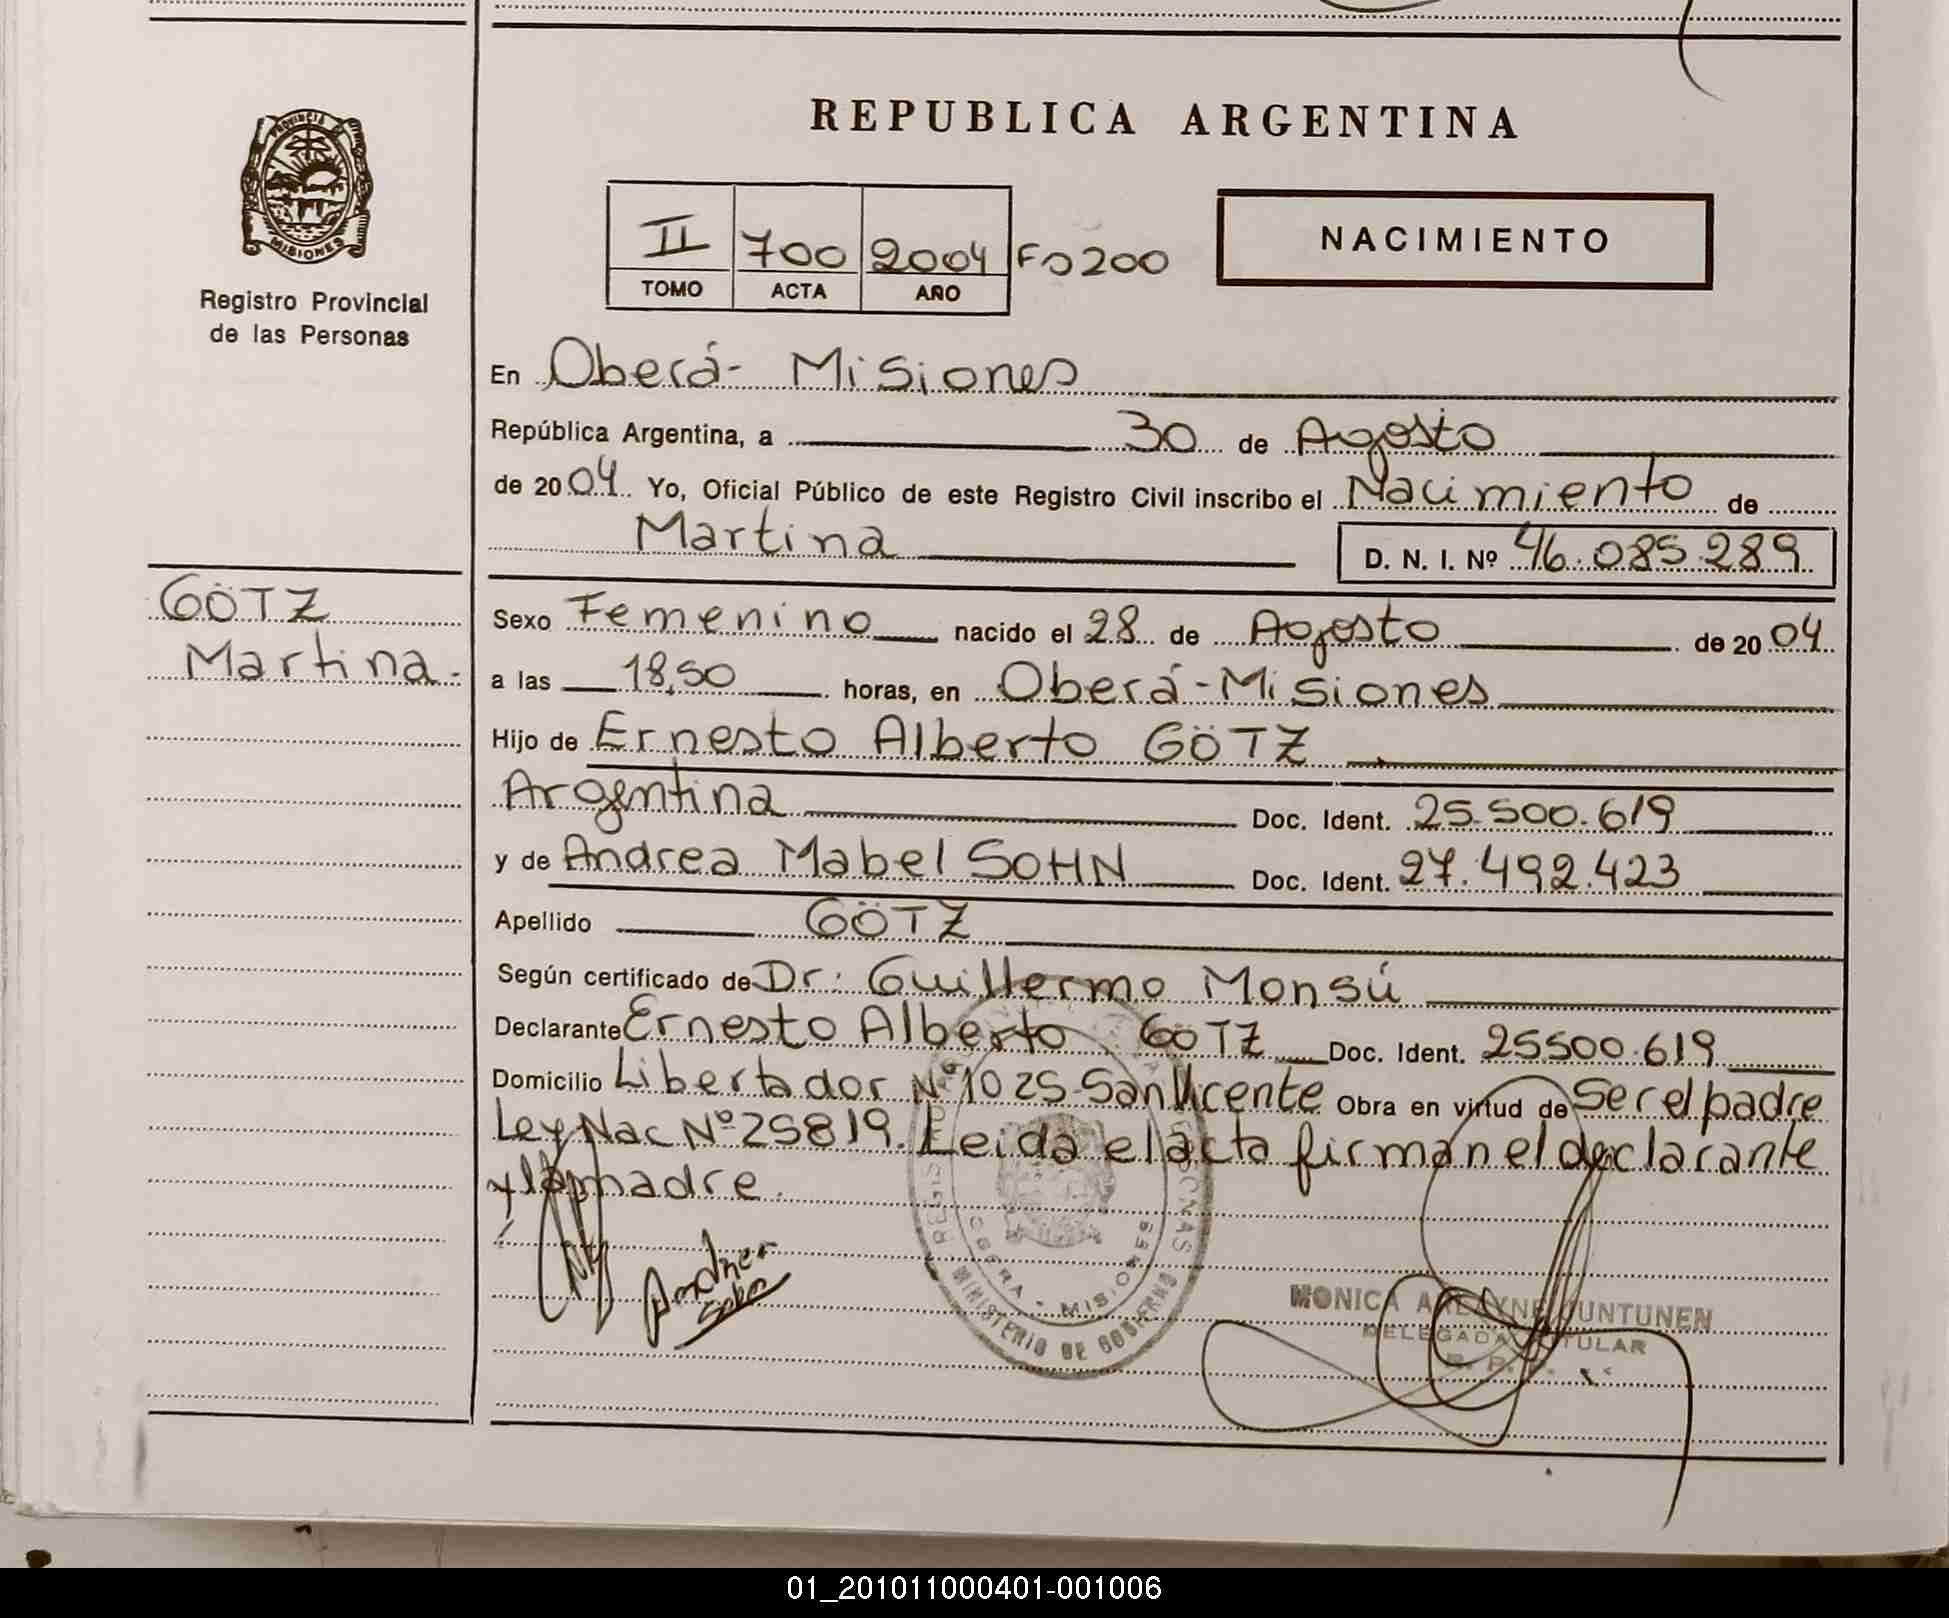 REPUBLICA ARGENTINA
PROVINCIA DE
MISIONES
Registro Provincial
de las Personas
II 700 2004 Fo 200
TOMO ACTA AÑO
NACIMIENTO
En Oberá - Misiones
República Argentina, a 30 de Agosto
de 2004. Yo, Oficial Público de este Registro Civil inscribo el Nacimiento de
Martina D. N. I. Nº 46.085.289
GÖTZ
Martina.-
Sexo Femenino nacido el 28 de Agosto de 2004
a las 18,50 horas, en Oberá - Misiones
Hijo de Ernesto Alberto GÖTZ
Argentina Doc. Ident. 25.500.619
y de Andrea Mabel SOHN Doc. Ident. 27.492.423
Apellido GÖTZ
Según certificado de Dr: Guillermo Monsú
Declarante Ernesto Alberto GÖTZ Doc. Ident. 25500.619
Domicilio Libertador Nº 1025-San Vicente Obra en virtud de Ser el padre
Ley Nac Nº 25819. Leida el acta firman el declarante
y la madre.
Andrea
Sohn
OBERA - MISIONES
MINISTERIO DE GOBIERNO
MONICA JUNTUNEN
DELEGADA TITULAR
01_201011000401-001006